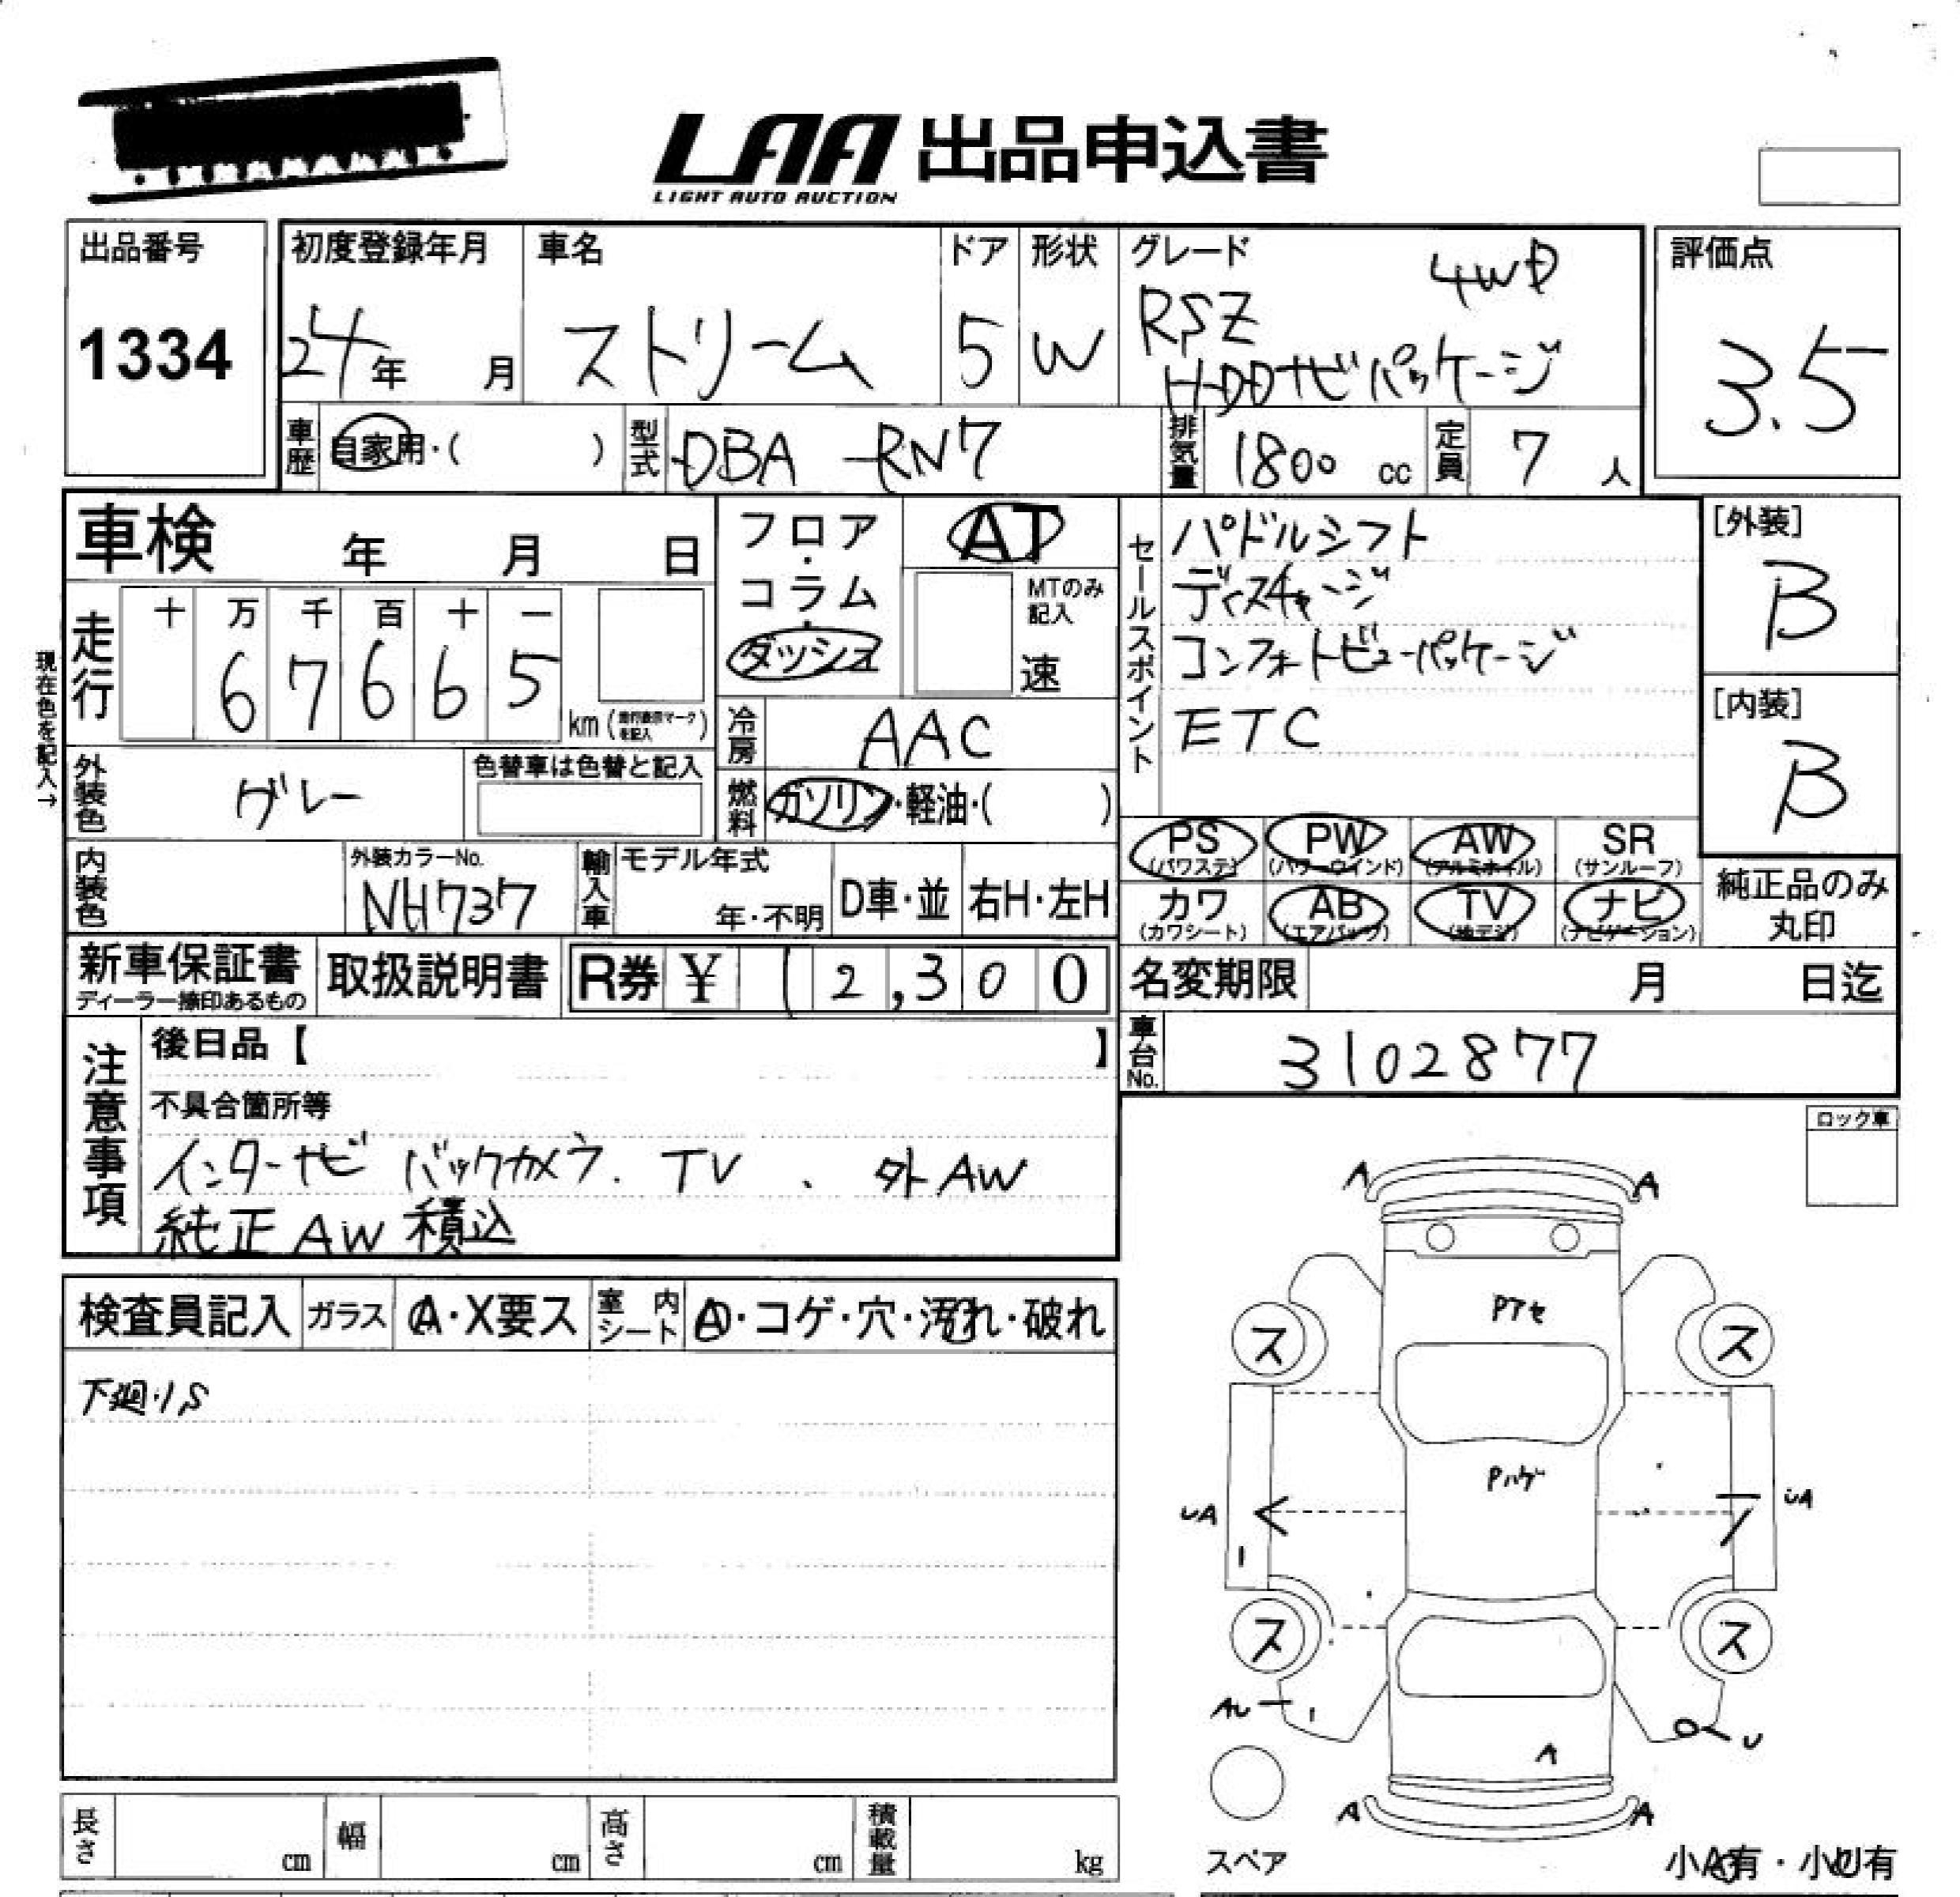 LAA 出品申込書
LIGHT AUTO AUCTION
出品番号
1334
初度登録年月
24年 月
車名
ストリーム
ドア
5
形状
W
グレード
4WD
RSZ
HDDナビパッケージ
評価点
3.5
車歴 自家用・( )
型式 DBA-RN7
排気量 1800 cc
定員 7 人
車検 年 月 日
フロア・コラム・ダッシュ
AT
MTのみ記入
速
現在色を記入→
走行
十 万 千 百 十 一
6 7 6 6 5
km
を記入
外装色 グレー
色替車は色替と記入
冷房 AAC
燃料 ガソリン・軽油・( )
内装色
外装カラーNo.
NH737
輸入車
モデル年式
年・不明
D車・並
右H・左H
セールスポイント
パドルシフト
ディスチャージ
コンフォートビューパッケージ
ETC
[外装]
B
[内装]
B
PS (パワステ) PW (パワーウインド) AW (アルミホイル) SR (サンルーフ)
カワ (カワシート) AB (エアバック) TV (地デジ) ナビ (ナビゲーション)
純正品のみ
丸印
新車保証書
ディーラー捺印あるもの
取扱説明書
R券 ¥ 12,300
名変期限 月 日迄
車台No. 3102877
注意事項
後日品【 】
不具合箇所等
インターナビ バックカメラ. TV 、 外AW
純正AW 積込
ロック車
検査員記入
ガラス A・X要ス
室内シート A・コゲ・穴・汚れ・破れ
下廻りS
A A
Pアセ
ス ス
Pハゲ
UA UA
ス ス
AU
U
A
A A
スペア
小A有・小U有
長さ cm
幅 cm
高さ cm
積載量 kg